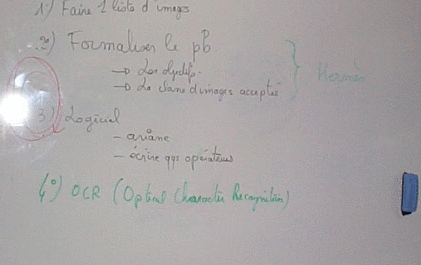 1) Faire 1 liste d'images
2) Formaliser le pb.
→ Les objectifs.
→ La classe d'images acceptés
Hermès
3) Logiciel
- ariane
- écrire qqs opérateurs
4°) OCR (Optical Character Recognition)